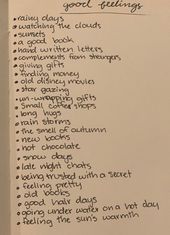 good feelings
•rainy days
•watching the clouds
•sunsets
•a good book
•hand written letters
•complements from strangers
•giving gifts
•finding money
•old disney movies
•star gazing
•un-wrapping gifts
•small coffee shops
•long hugs
•rain storms
•the smell of autumn
•new books
•hot chocolate
•snow days
•late night chats
•being trusted with a secret
•feeling pretty
•old books
•good hair days
•going under water on a hot day
•feeling the sun's warmth